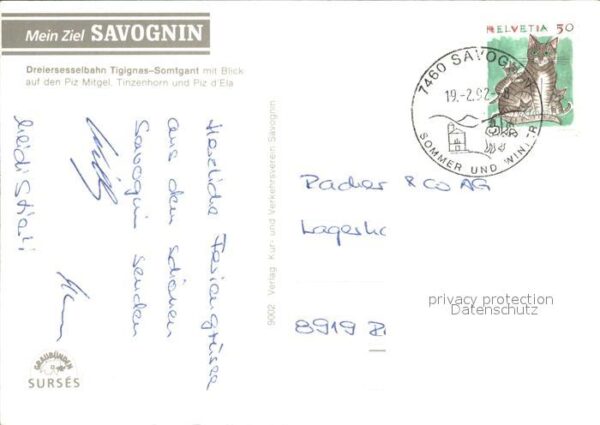 Mein Ziel SAVOGNIN
Dreiersesselbahn Tigignas–Somtgant mit Blick
auf den Piz Mitgel, Tinzenhorn und Piz d'Ela
HELVETIA 50
7460 SAVOGNIN
19.-2.92-8
SOMMER UND WINTER
Herzliche Feriengrüsse
aus dem schönen
Savognin senden
Heidi
9002 Verlag Kur- und Verkehrsverein Savognin
Pacher & Co AG
8919
privacy protection
Datenschutz
GRAUBÜNDEN
SURSÉS